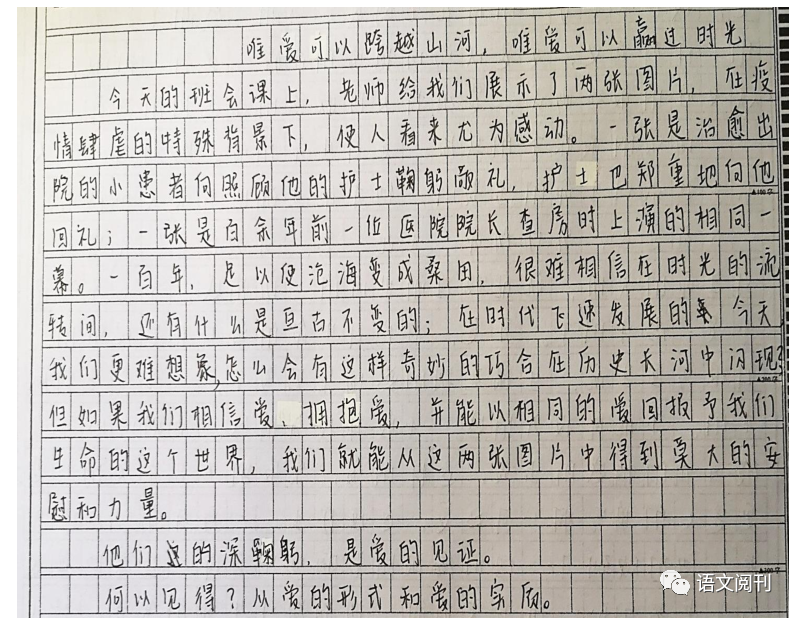 唯爱可以跨越山河，唯爱可以赢过时光
今天的班会课上，老师给我们展示了两张图片，在疫
情肆虐的特殊背景下，使人看来尤为感动。一张是治愈出
院的小患者向照顾他的护士鞠躬敬礼，护士也郑重地向他
回礼；一张是百余年前一位医院院长查房时上演的相同一
幕。一百年，足以使沧海变成桑田，很难相信在时光的流
转间，还有什么是亘古不变的；在时代飞速发展的今天，
我们更难想象，怎么会有这样奇妙的巧合在历史长河中闪现？
但如果我们相信爱、拥抱爱，并能以相同的爱回报予我们
生命的这个世界，我们就能从这两张图片中得到莫大的安
慰和力量。
他们的深鞠躬，是爱的见证。
何以见得？从爱的形式和爱的实质。
语文阅刊